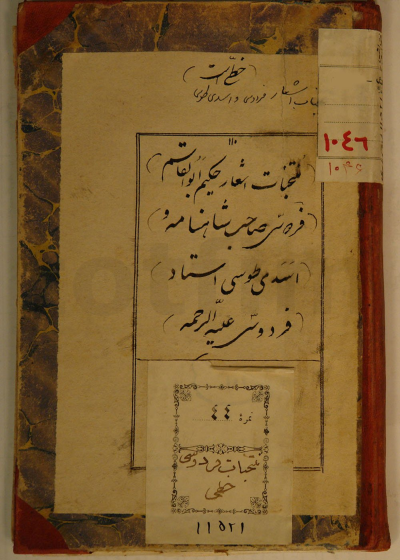 (خطی است)
اشعار فردوسی و اسدی طوسی
۱۰۴۶
۱۱۰
(منتخبات اشعار حکیم ابوالقاسم)
(فردوسی صاحب شاهنامه و)
(اسدی طوسی استاد)
(فردوسی علیه الرحمه)
نمره ۴۴
منتخبات فردوسی
خطی
۱۱۵۲۱